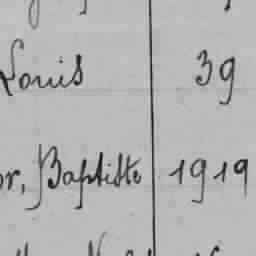 Louis 39
or, Baptiste 1919